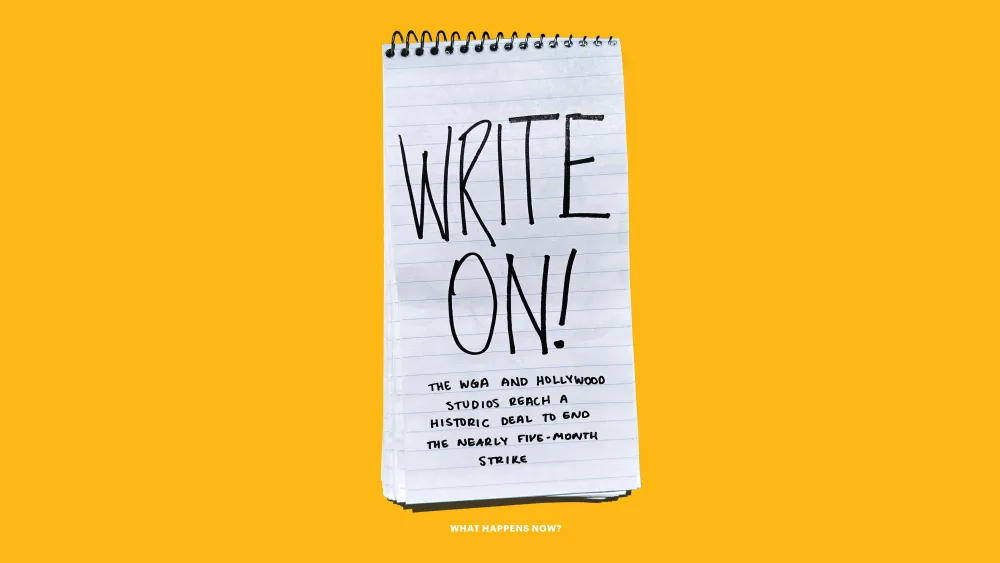 WRITE
ON!
THE WGA AND HOLLYWOOD
STUDIOS REACH A
HISTORIC DEAL TO END
THE NEARLY FIVE-MONTH
STRIKE
WHAT HAPPENS NOW?